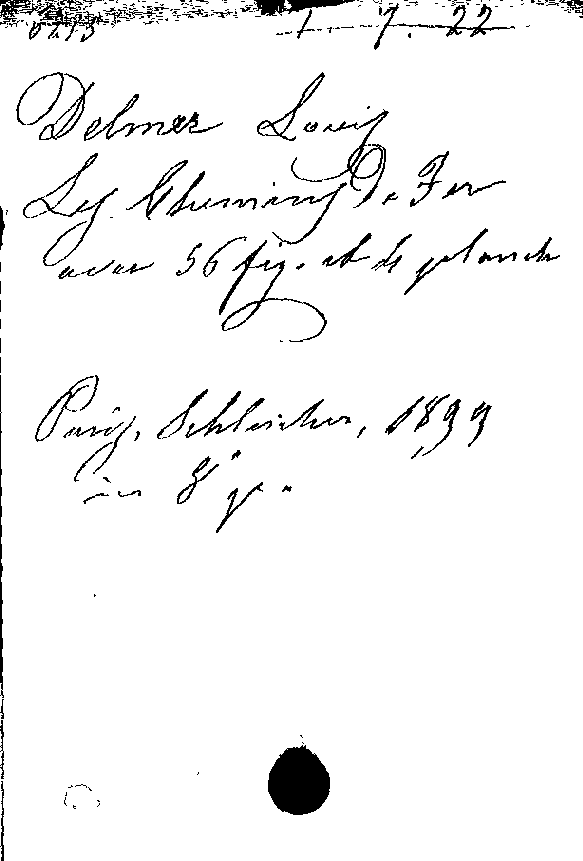 6213 1. 7. 22
Delmer Louis
Les Chemins De Fer
avec 56 fig. et 4 planch
Paris, Schleicher, 1899
in 8° gr.